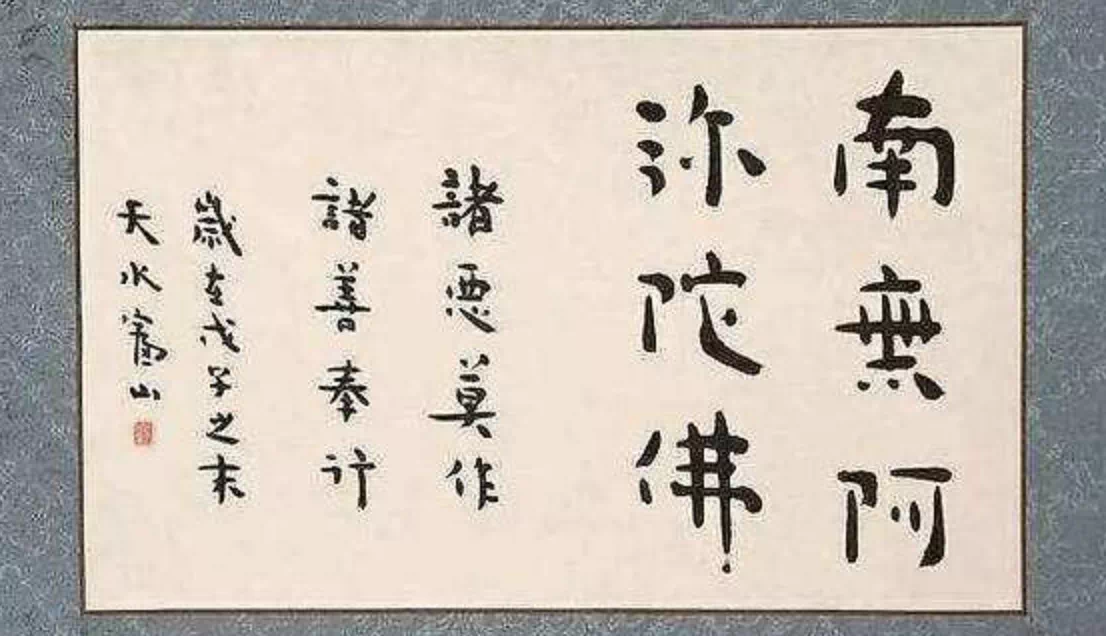 南無阿
弥陀佛
諸惡莫作
諸善奉行
歲在戊子之末
天水富山